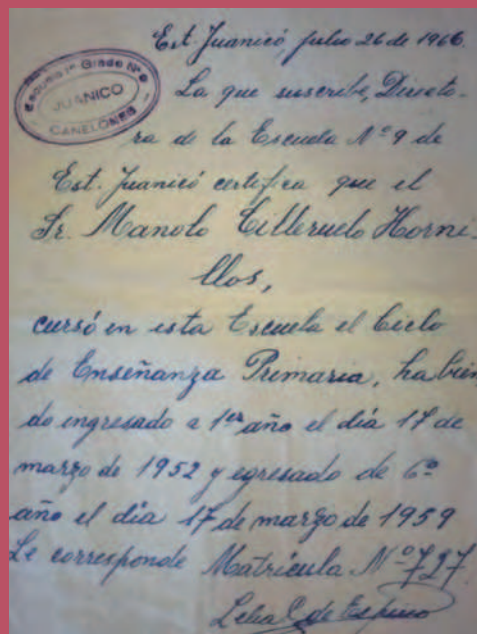 Est. Juanicó, julio 26 de 1966.
Escuela 1er Grado Nº 9
JUANICO
CANELONES
La que suscribe, Directo-
ra de la Escuela Nº 9 de
Est. Juanicó certifica que el
Sr. Manolo Cilleruelo Horni-
llos,
cursó en esta Escuela el Ciclo
de Enseñanza Primaria, habien
do ingresado a 1er año el día 17 de
marzo de 1952 y egresado de 6º
año el día 17 de marzo de 1959
Le corresponde Matrícula Nº 727
Lelia C. de Espino